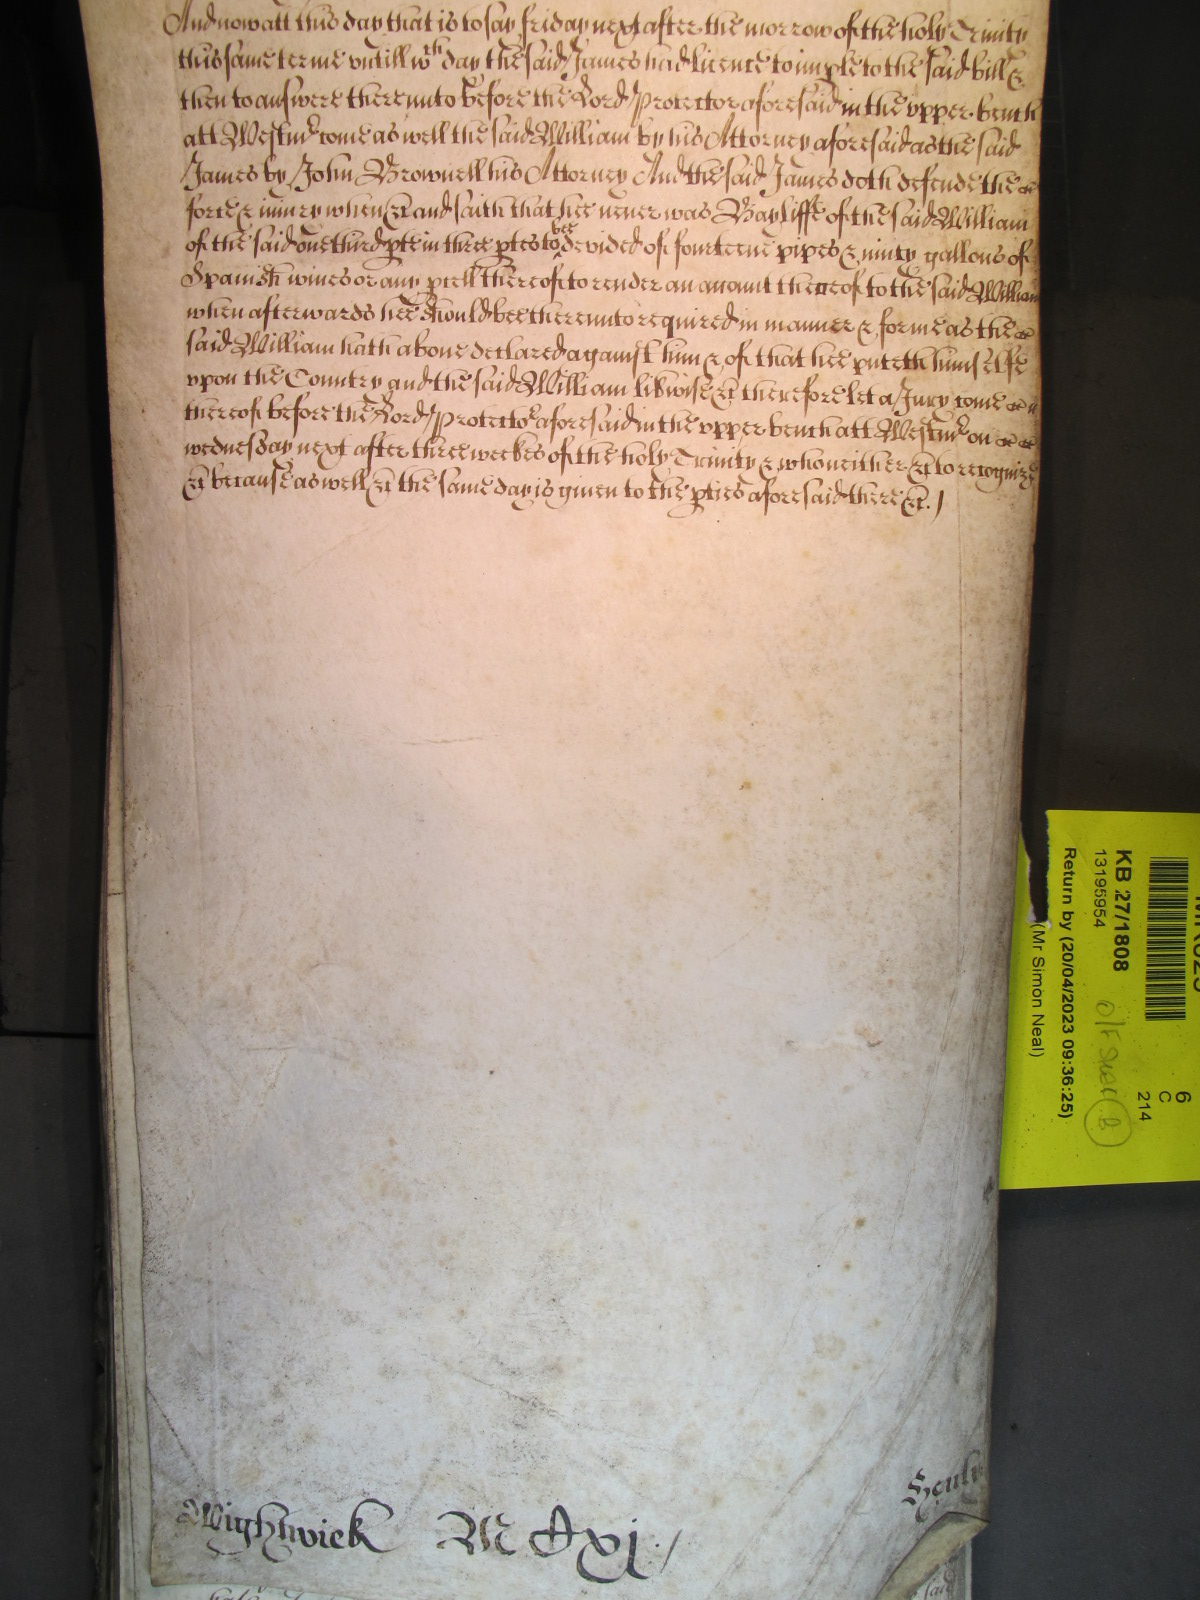 And now att this day that is to say friday next after the morrow of the holy Trinity
this same terme vntill wch day the said James had licence to imple to the said bill &
then to answere therevnto before the Lord Protector aforesaid in the vpper bench
att Westmr come as well the said William by his Attorney aforesaid as the said
James by John Brownell his Attorney And the said James doth defende the
force & iniury when &c and saith that hee neuer was Bayliffe of the said William
of the said one third pte in three ptes to bee devided of fourteene pipes & ninty gallons of
Spanish wines or any pcell thereof to render an accunt thereof to the said William
when afterwards hee should bee therevnto required in manner & forme as the
said William hath aboue declared against him & of that hee putteth himselfe
vpon the Country and the said William likwise &c therefore let a Jury come
thereof before the Lord Protector aforesaid in the vpper bench att Westmr on
wednesday next after three weekes of the holy Trinity & who neither &c to recognize
&c because as well &c the same day is given to the pties aforesaid there &c./
KB 27/1808
13195954
Return by (20/04/2023 09:36:25)
(Mr Simon Neal)
6
C
214
Wightwick M Cxj./